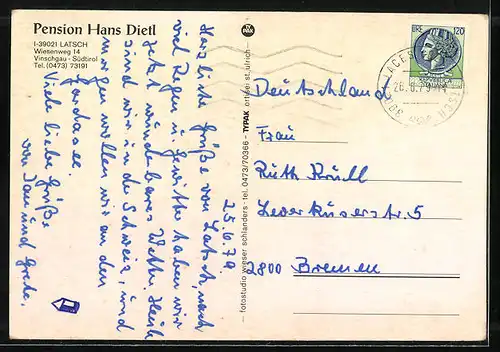 Pension Hans Dietl
I-39021 LATSCH
Wiesenweg 14
Vinschgau - Südtirol
Tel. (0473) 73191
25.6.79.
Herzliche Grüße von Latsch, nach
viel Regen u. Gewitter haben wir
jetzt wunderbares Wetter. Heute
sind wir in der Schweiz, und
morgen wollen wir an den
Gardasee.
Viele liebe Grüße
von Jan und Grete.
fotostudio wieser schlanders - tel. 0473/70366 - TYPAK ortisei-st.ulrich
PAK
LIRE 120
REPUBBLICA
ITALIANA
Deutschland
Frau
Ruth Krull
Leverkuserstr. 5
2800 Bremen